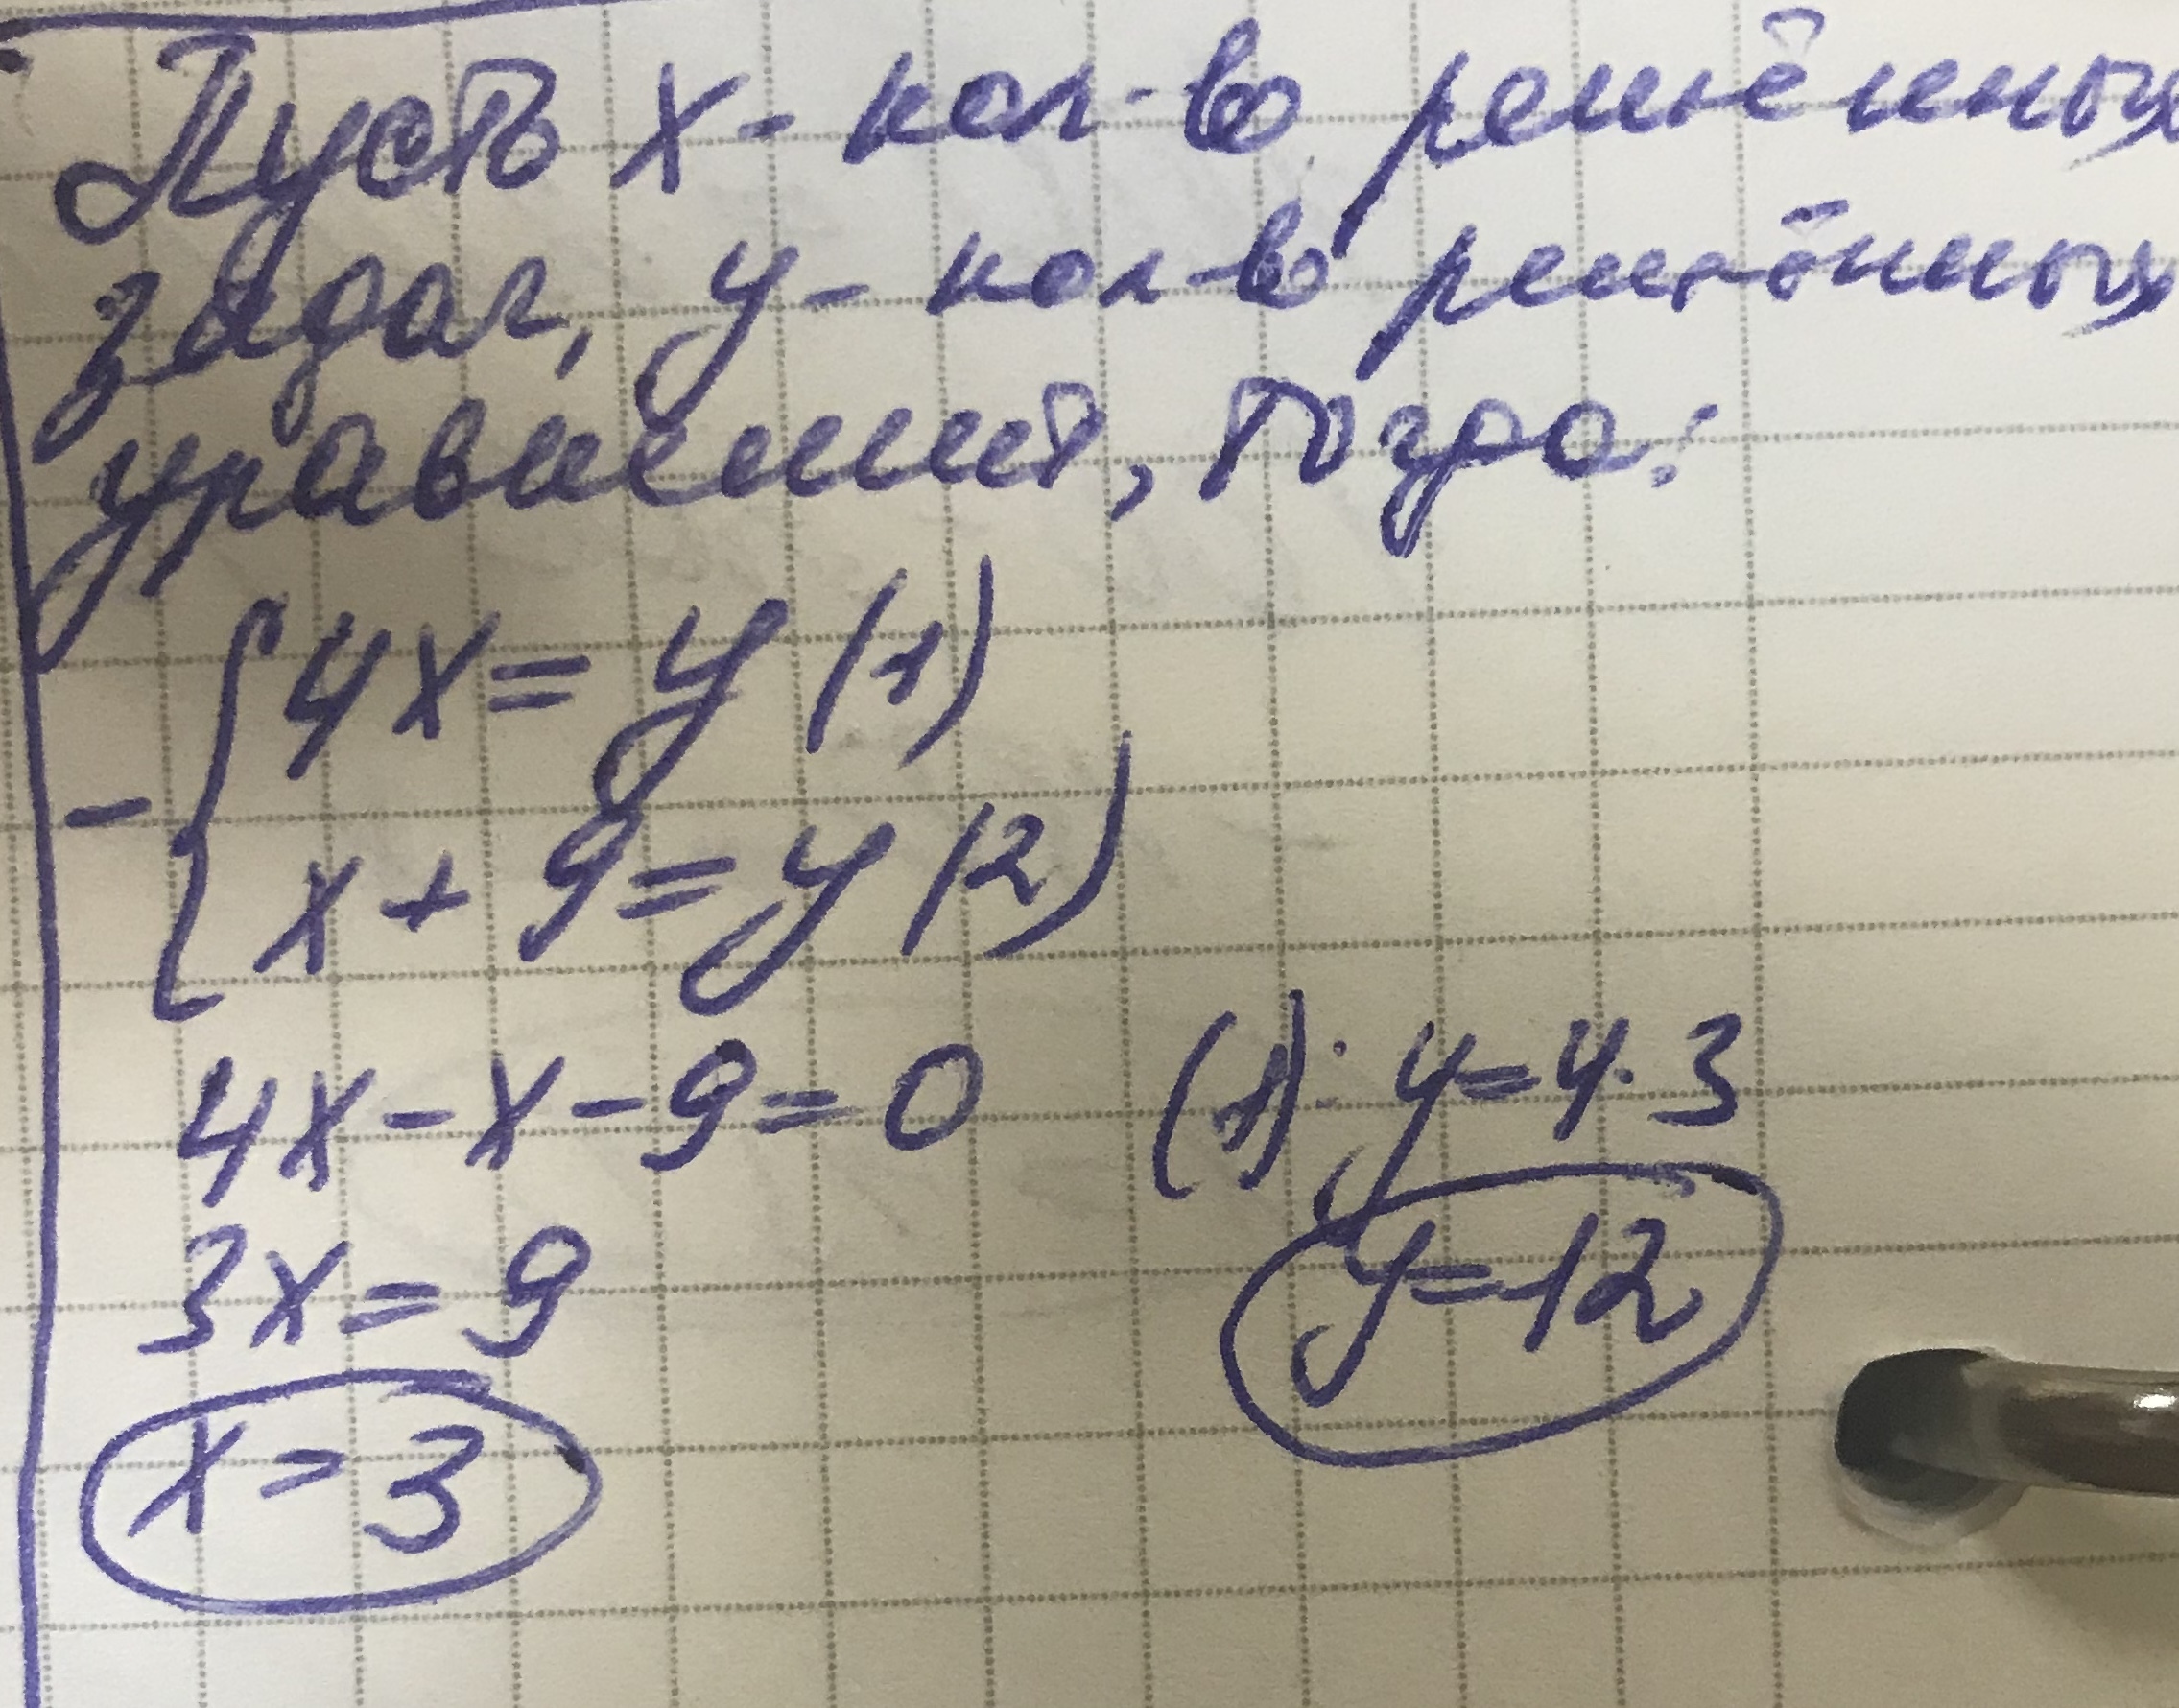 Пусть x - кол-во решённых
задач, y - кол-во решённых
уравнений, тогда:
4x = y (1)
-
x + 9 = y (2)
4x - x - 9 = 0
3x = 9
x = 3
(1): y = 4 · 3
y = 12